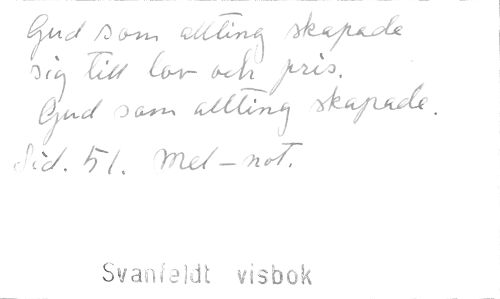 Gud som allting skapade
sig till lov och pris.
Gud som allting skapade.
Sid. 51. Mel-not.
Svanfeldt visbok